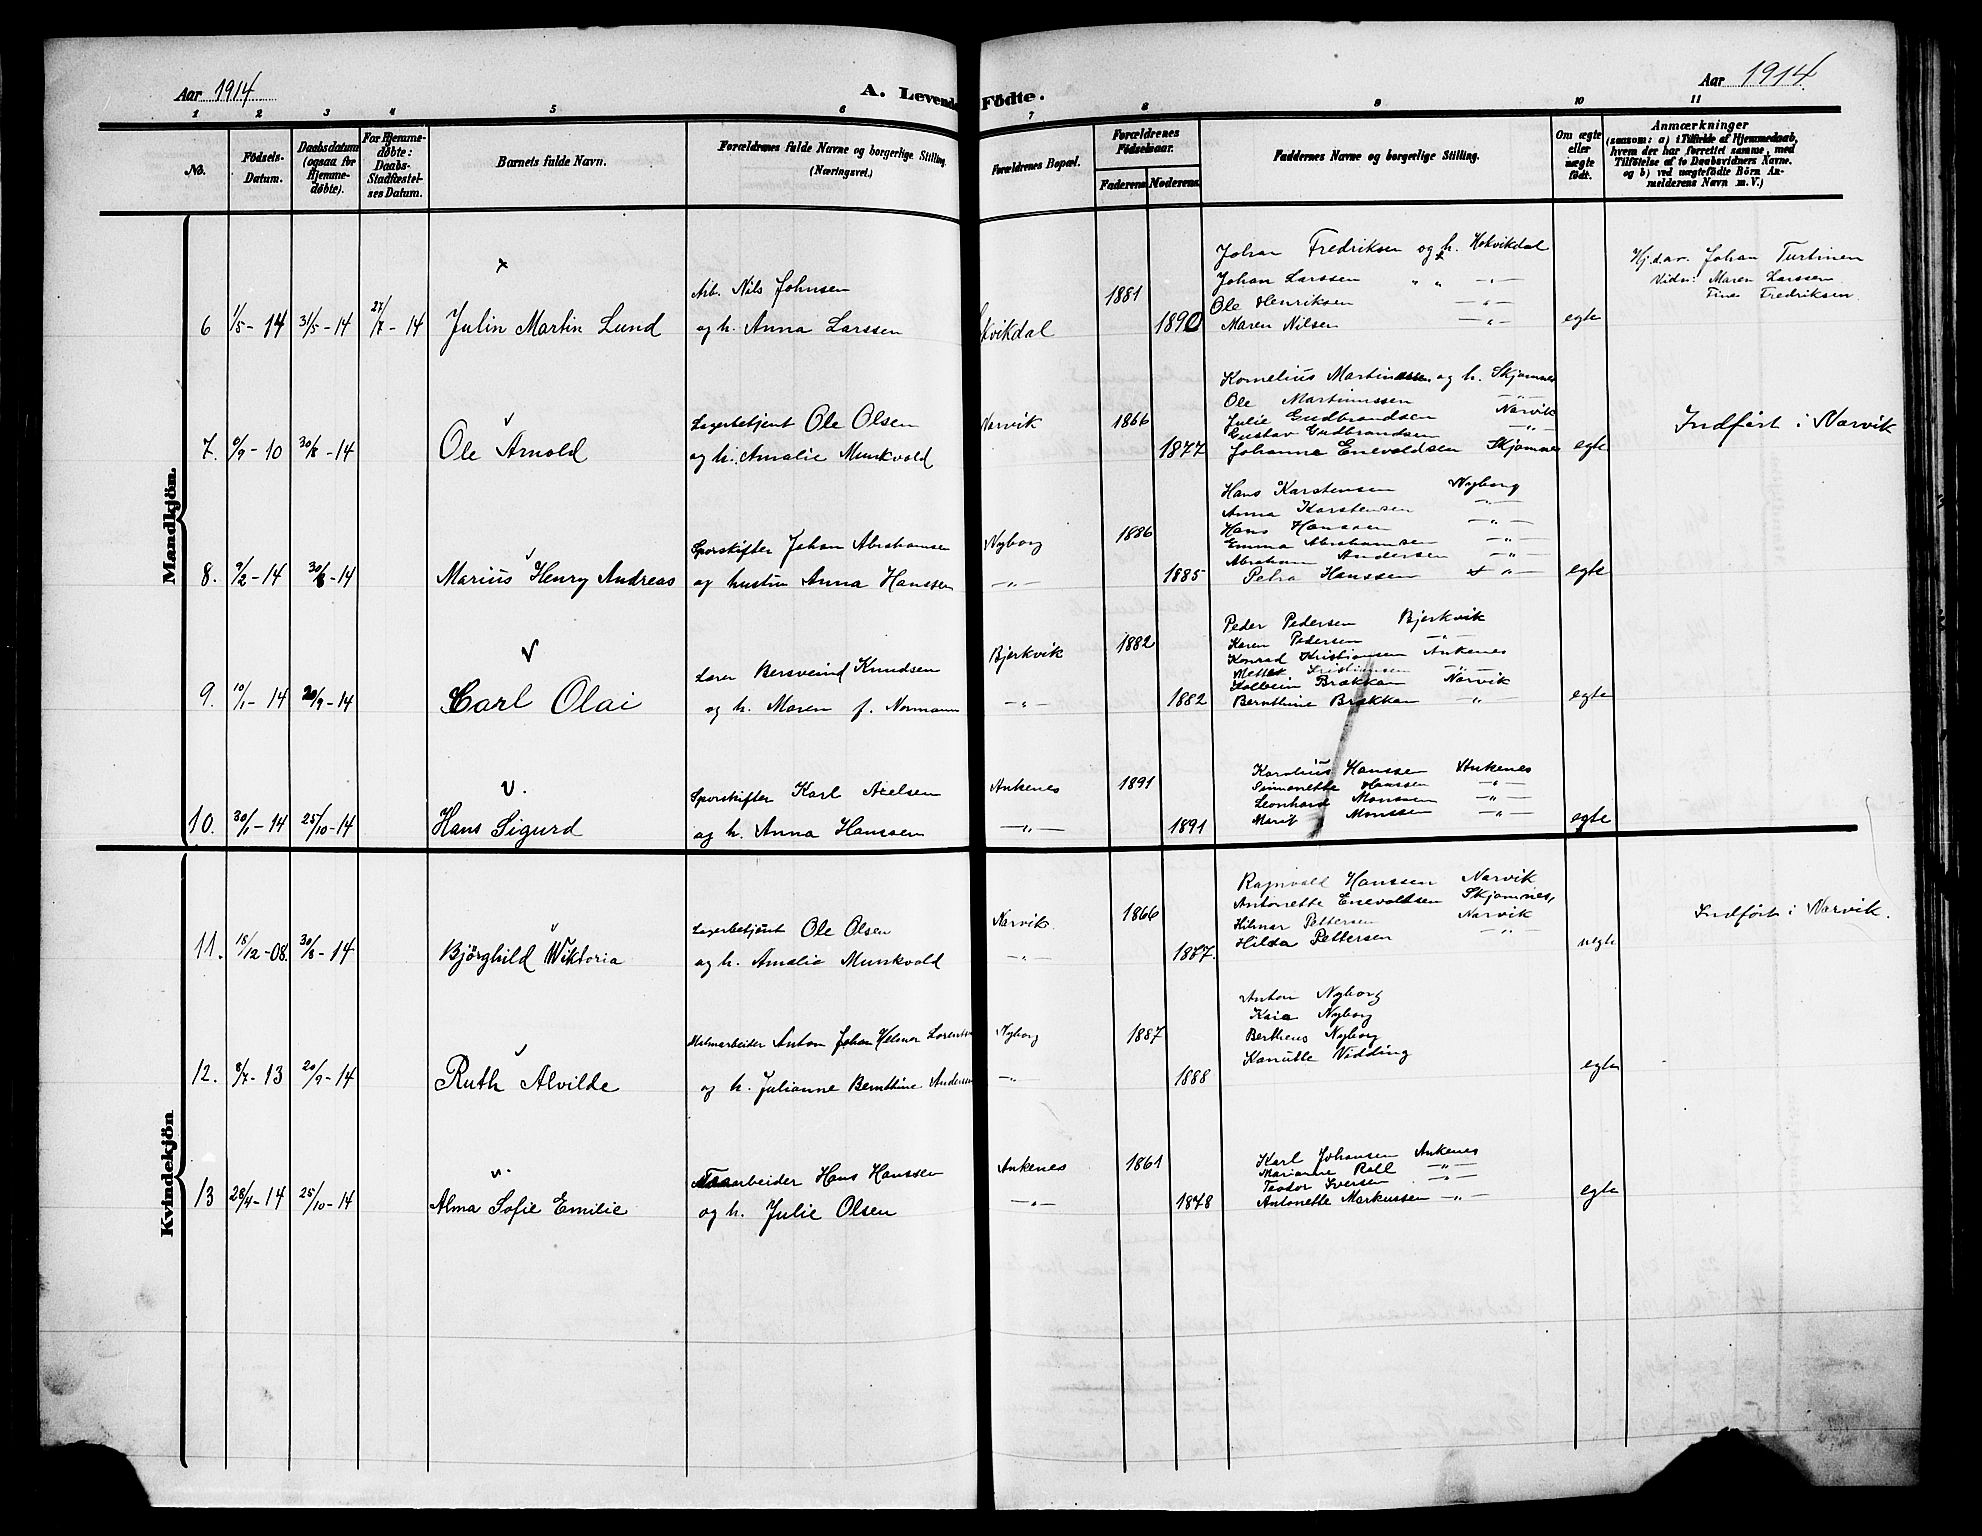 Aar 1914
A. Levende Födte.
Aar 1914
1 2 3 4 5 6 7 8 9 10 11
No.
Födsels-
Datum.
Daabsdatum
(ogsaa for
Hjemme-
døbte).
For Hjemme-
døbte:
Daabs-
Stadfæstel-
ses Datum.
Barnets fulde Navn.
Forældrenes fulde Navne og borgerlige Stilling.
(Næringsvei.)
Forældrenes Bopæl.
Forældrenes
Födselsaar.
Faderens Moderens
Faddernes Navne og borgerlige Stilling.
Om ægte
eller
uægte
født.
Anmærkninger
(saasom: a) i Tilfælde af Hjemmedaab,
hvem der har forrettet samme, med
Tilföielse af to Daabsvidners Navne.
og b) ved uægtefödte Börn An-
melderens Navn m. V.)
Mandkjön.
6 1/5-14 31/5-14 27/7-14
Julin Martin Lund
Arb. Nils Johnsen
og h. Anna Larssen
1881
1890
Johan Fredriksen og h. Hekvikdal
Johan Larssen " " -"-
Ole Henriksen -"-
Maren Nilsen -"-
egte
Hj.d. av. Johan Turtinen
Vidn: Maren Larssen
Fines Fredriksen.
7. 9/9-10 30/8-14
Ole Arnold
Lagerbetjent Ole Olsen
og h. Amalie Munkvold
Narvik
1866
1877
Kornelius Martinussen og h. Skjomnes
Ole Martinussen -"-
Julie Gudbrandsen Narvik
Gustav Gudbrandsen -"-
Johanne Enevoldsen Skjomnes
egte
Indført i Narvik
8. 9/2-14 30/8-14
Marius Henry Andreas
Sporskifter Johan Abrahamsen
og hustru Anna Hanssen
Nyborg
-"-
1886
1885
Hans Karstensen Nyborg
Anna Karstensen -"-
Hans Hanssen -"-
Emma Abrahamsen -"-
Abraham Andersen -"-
Petra Hanssen -"-
egte
9. 10/1-14 20/9-14
Carl Olai
Lærer Bersveind Knudsen
og h. Maren f. Normann
Bjerkvik
-"-
1882
1882
Peder Pedersen Bjerkvik
Karen Pedersen -"-
Konrad Kristiansen Ankenes
Mette Kristiansen -"-
Kolbein Brækkan Narvik
Bernthine Brækkan "
egte
10. 30/1-14 25/10-14
Hans Sigurd
Sporskifter Karl Axelsen
og h. Anna Hanssen
Ankenes
-"-
1891
1891
Karolius Hanssen Ankenes
Simonette Hanssen -"-
Leonhard Monssen -"-
Marit Monssen -"-
egte
Kvindekjön
11. 18/12-08. 30/8-14
Bjørghild Wiktoria
Lagerbetjent Ole Olsen
og h. Amalie Munkvold
Narvik.
-"-
1866
1877.
Ragnvald Hanssen Narvik
Antonette Enevoldsen Skjomnes,
Hilmar Pettersen Narvik
Hilda Pettersen -"-
uegte
Indført i Narvik.
12. 8/7-13 20/9-14
Ruth Alvilde
Malmarbeider Anton Johan Helmor Lorentsen
og h. Julianne Bernthine Andersen
Nyborg
-"-
1887
1888
Anton Nyborg
Kaia Nyborg
Bertheus Nyborg
Kanutte Vidding
egte
13 28/4-14 25/10-14
Alma Sofie Emilie
arbeider Hans Hanssen
og h. Julie Olsen
Ankenes
-"-
1861
1878
Karl Johansen Ankenes
Marianne Roll -"-
Teodor Iversen -"-
Antonette Markussen -"-
egte